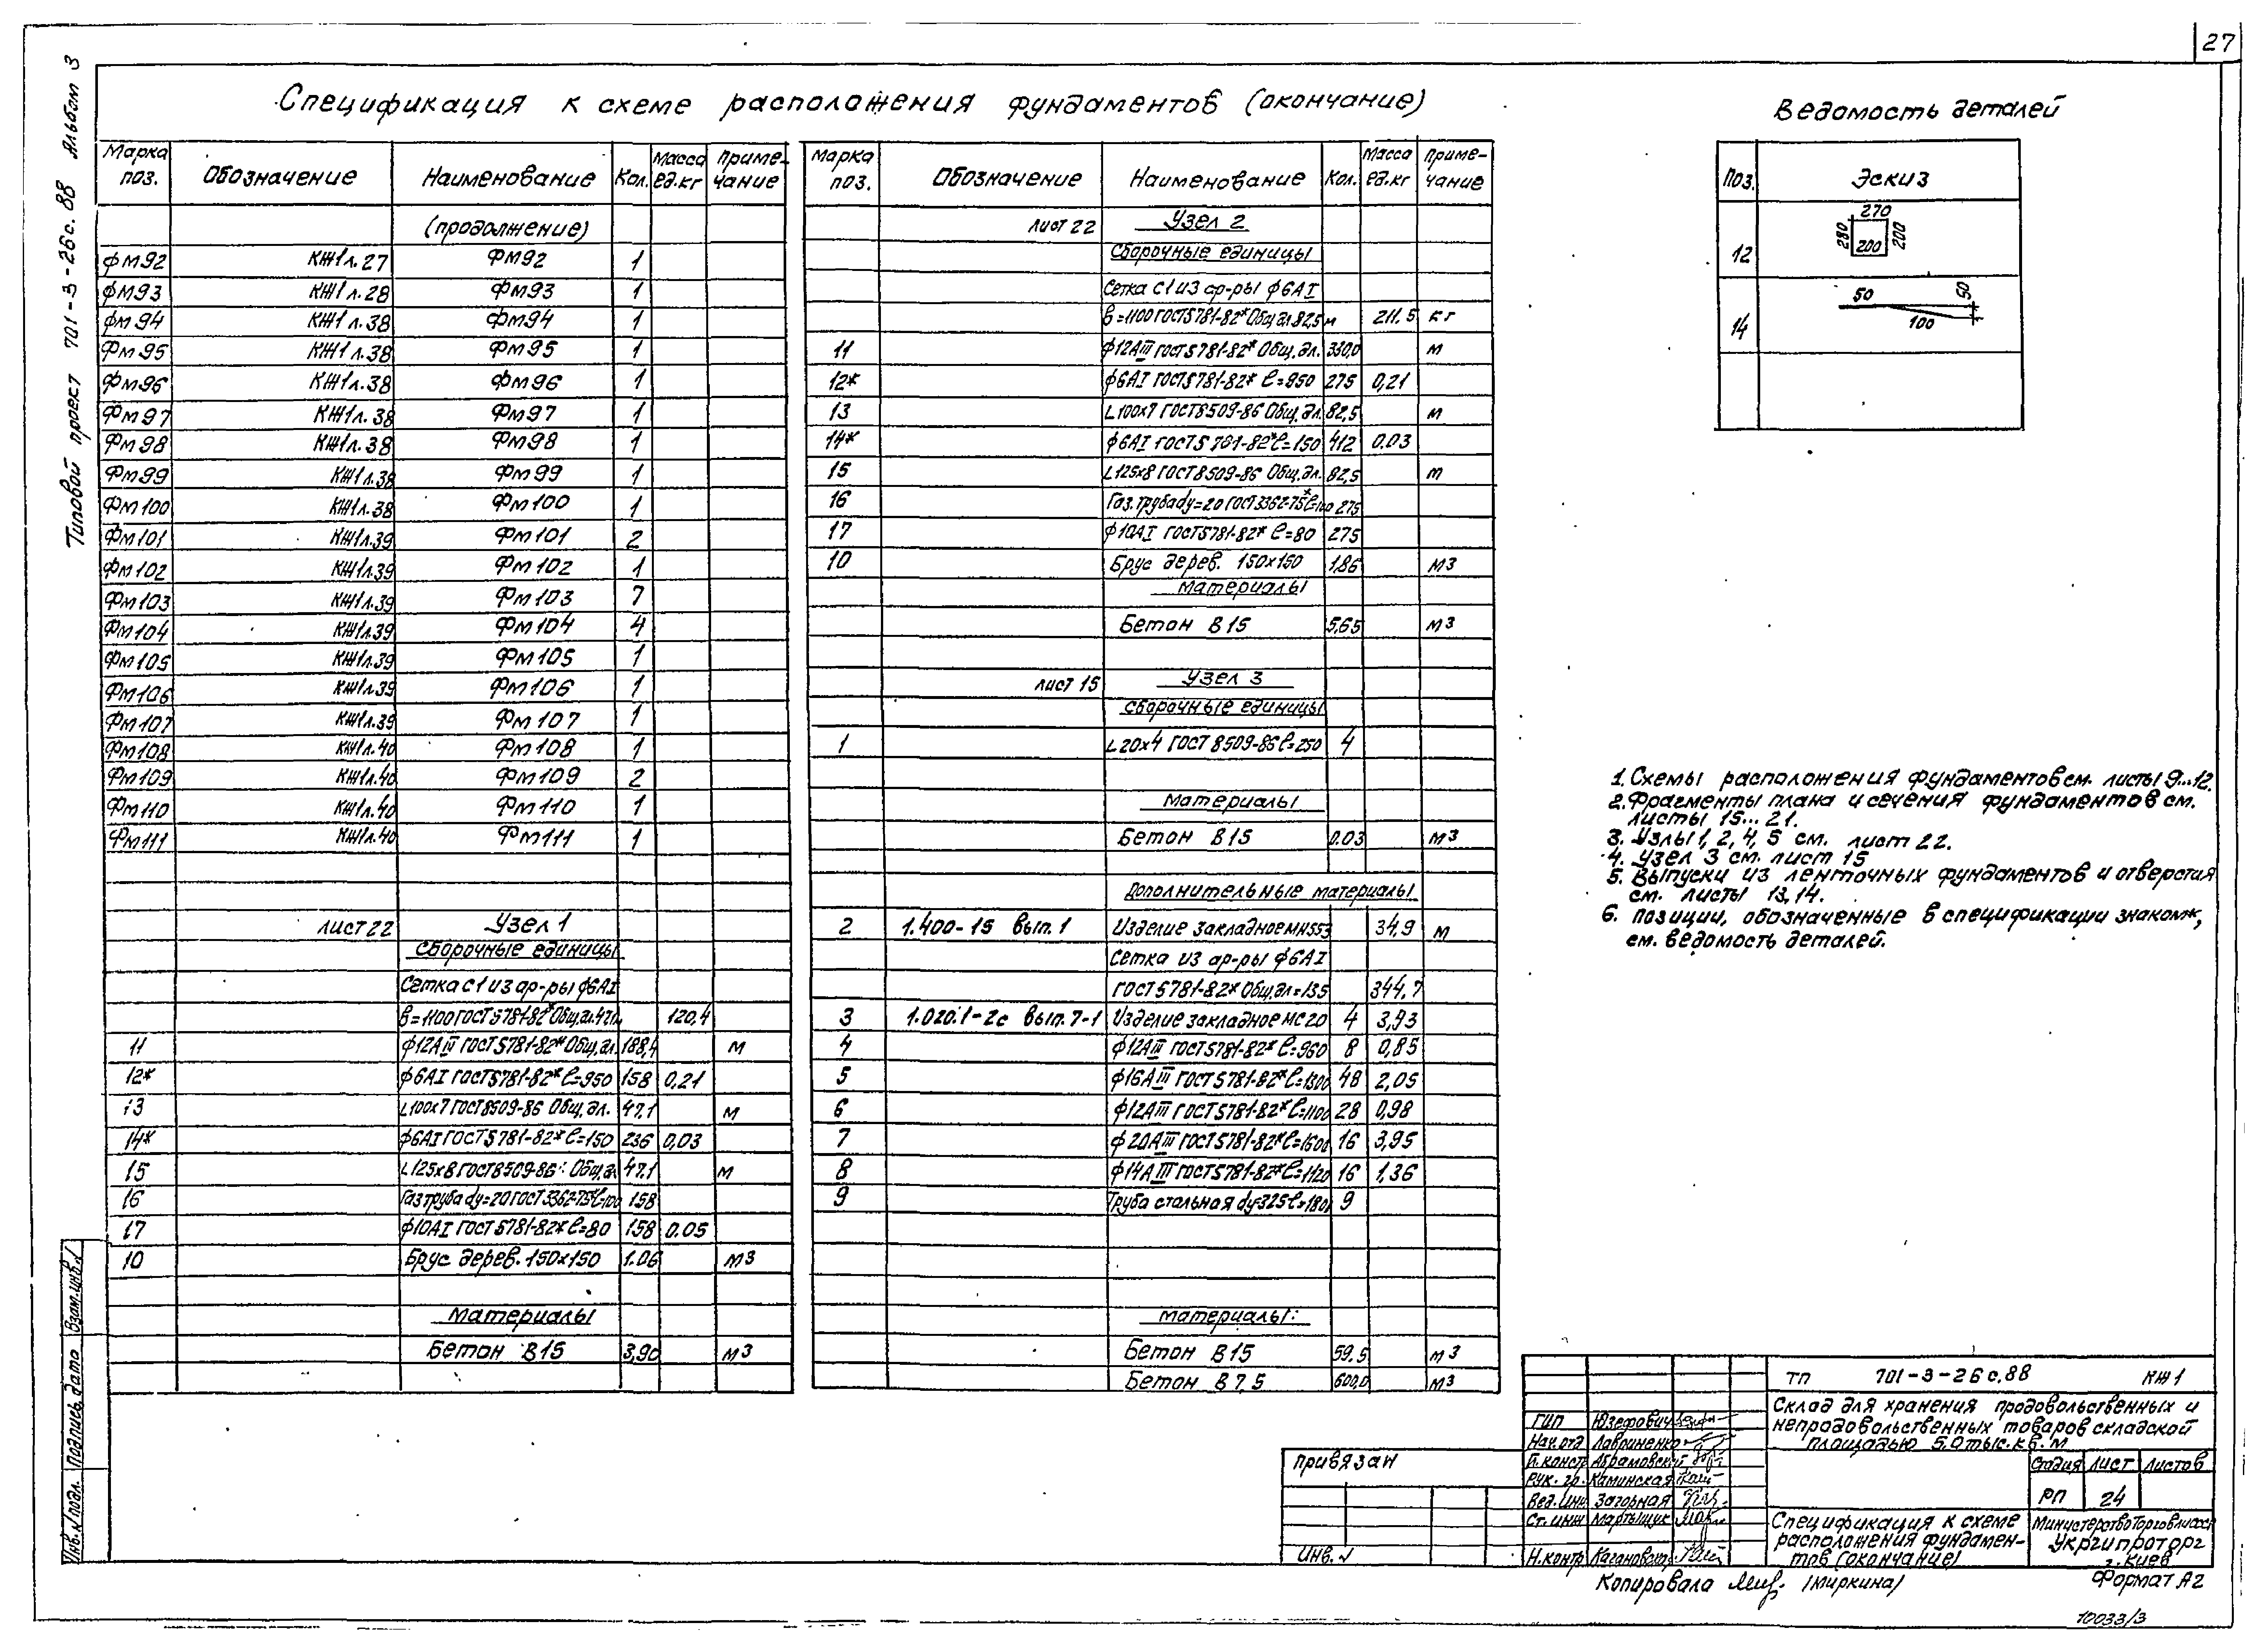 27
Типовой проект 701-3-26с.88 Альбом 3
Спецификация к схеме расположения фундаментов (окончание)
Марка поз. Обозначение Наименование Кол. Масса ед.кг Приме-чание
(продолжение)
Фм92 КЖ1л.27 Фм92 1
Фм93 КЖ1л.28 Фм93 1
Фм94 КЖ1л.38 Фм94 1
Фм95 КЖ1л.38 Фм95 1
Фм96 КЖ1л.38 Фм96 1
Фм97 КЖ1л.38 Фм97 1
Фм98 КЖ1л.38 Фм98 1
Фм99 КЖ1л.38 Фм99 1
Фм100 КЖ1л.38 Фм100 1
Фм101 КЖ1л.39 Фм101 2
Фм102 КЖ1л.39 Фм102 1
Фм103 КЖ1л.39 Фм103 7
Фм104 КЖ1л.39 Фм104 4
Фм105 КЖ1л.39 Фм105 1
Фм106 КЖ1л.39 Фм106 1
Фм107 КЖ1л.39 Фм107 1
Фм108 КЖ1л.40 Фм108 1
Фм109 КЖ1л.40 Фм109 2
Фм110 КЖ1л.40 Фм110 1
Фм111 КЖ1л.40 Фм111 1
лист 22 Узел 1
Сборочные единицы
Сетка с1 из ар-ры ф6АI
в=1100 ГОСТ5781-82* Общ.дл.47,1м 120,4
11 ф12АIII ГОСТ5781-82* Общ.дл. 188,4 м
12* ф6АI ГОСТ5781-82* ℓ=950 158 0,21
13 L100х7 ГОСТ8509-86 Общ.дл. 47.1 м
14* ф6АI ГОСТ5781-82* ℓ=150 236 0,03
15 L125х8 ГОСТ8509-86 Общ.дл 47.1 м
16 Газ труба dу=20 ГОСТ3362-75* ℓ=100 158
17 ф10АI ГОСТ5781-82* ℓ=80 158 0.05
10 Брус дерев. 150х150 1.06 м3
Материалы
Бетон В15 3,90 м3
Марка поз. Обозначение Наименование Кол. Масса ед.кг Приме-чание
лист 22 Узел 2
Сборочные единицы
Сетка С1 из ар-ры ф6АI
в=1100 ГОСТ5781-82* Общ дл 82,5м 211.5 кг
11 ф12АIII ГОСТ5781-82* Общ.дл. 330,0 м
12* ф6АI ГОСТ5781-82* ℓ=950 275 0,21
13 L100х7 ГОСТ8509-86 Общ.дл. 82,5 м
14* ф6АI ГОСТ5781-82* ℓ=150 412 0.03
15 L125х8 ГОСТ8509-86 Общ.дл. 82,5 м
16 Газ.труба dу=20 ГОСТ3362-75* ℓ=100 275
17 ф10АI ГОСТ5781-82* ℓ=80 275
10 Брус дерев. 150х150 1,86 м3
Материалы
Бетон В15 5,65 м3
лист 15 Узел 3
Сборочные единицы
1 L20х4 ГОСТ 8509-86 ℓ=250 4
Материалы
Бетон В15 0.03 м3
Дополнительные материалы
2 1.400-15 вып.1 Изделие закладное МН553 34,9 м
Сетка из ар-ры ф6АI
ГОСТ5781-82* Общ.дл=135 344,7
3 1.020.1-2с вып.7-1 Изделие закладное МС20 4 3,93
4 ф12АIII ГОСТ5781-82* ℓ=960 8 0,85
5 ф16АIII ГОСТ5781-82* ℓ=1300 48 2,05
6 ф12АIII ГОСТ5781-82* ℓ=1100 28 0,98
7 ф20АIII ГОСТ5781-82* ℓ=1600 16 3,95
8 ф14АIII ГОСТ5781-82* ℓ=1120 16 1,36
9 Труба стальная dу=325 ℓ=180 9
Материалы:
Бетон В15 59.5 м3
Бетон В7,5 600,0 м3
Ведомость деталей
Поз. Эскиз
12 270 280 200 200
14 50 100 50
1. Схемы расположения фундаментов см. листы 9...12.
2. Фрагменты плана и сечения фундаментов см.
листы 15...21.
3. Узлы 1, 2, 4, 5 см. лист 22.
4. Узел 3 см. лист 15
5. Выпуски из ленточных фундаментов и отверстия
см. листы 13,14.
6. Позиции, обозначенные в спецификации знаком*,
см. ведомость деталей.
ТП 701-3-26с.88 КЖ1
Склад для хранения продовольственных и
непродовольственных товаров складской
площадью 5.0 тыс.кв.м
Стадия Лист Листов
РП 24
Спецификация к схеме
расположения фундамен-
тов (окончание)
Министерство Торговли СССР
Укргипроторг
г.Киев
ГИП Юзефович
Нач.отд Лавриненко
Гл.констр Абрамовский
Рук.гр. Каминская
Вед.инж Загорная
Ст.инж Мартыщук
Н.контр Кагановская
Привязан
Инв.№
Инв.№ подл. Подпись, дата Взам.инв.№
Копировала (Миркина) Формат А2
10033/3